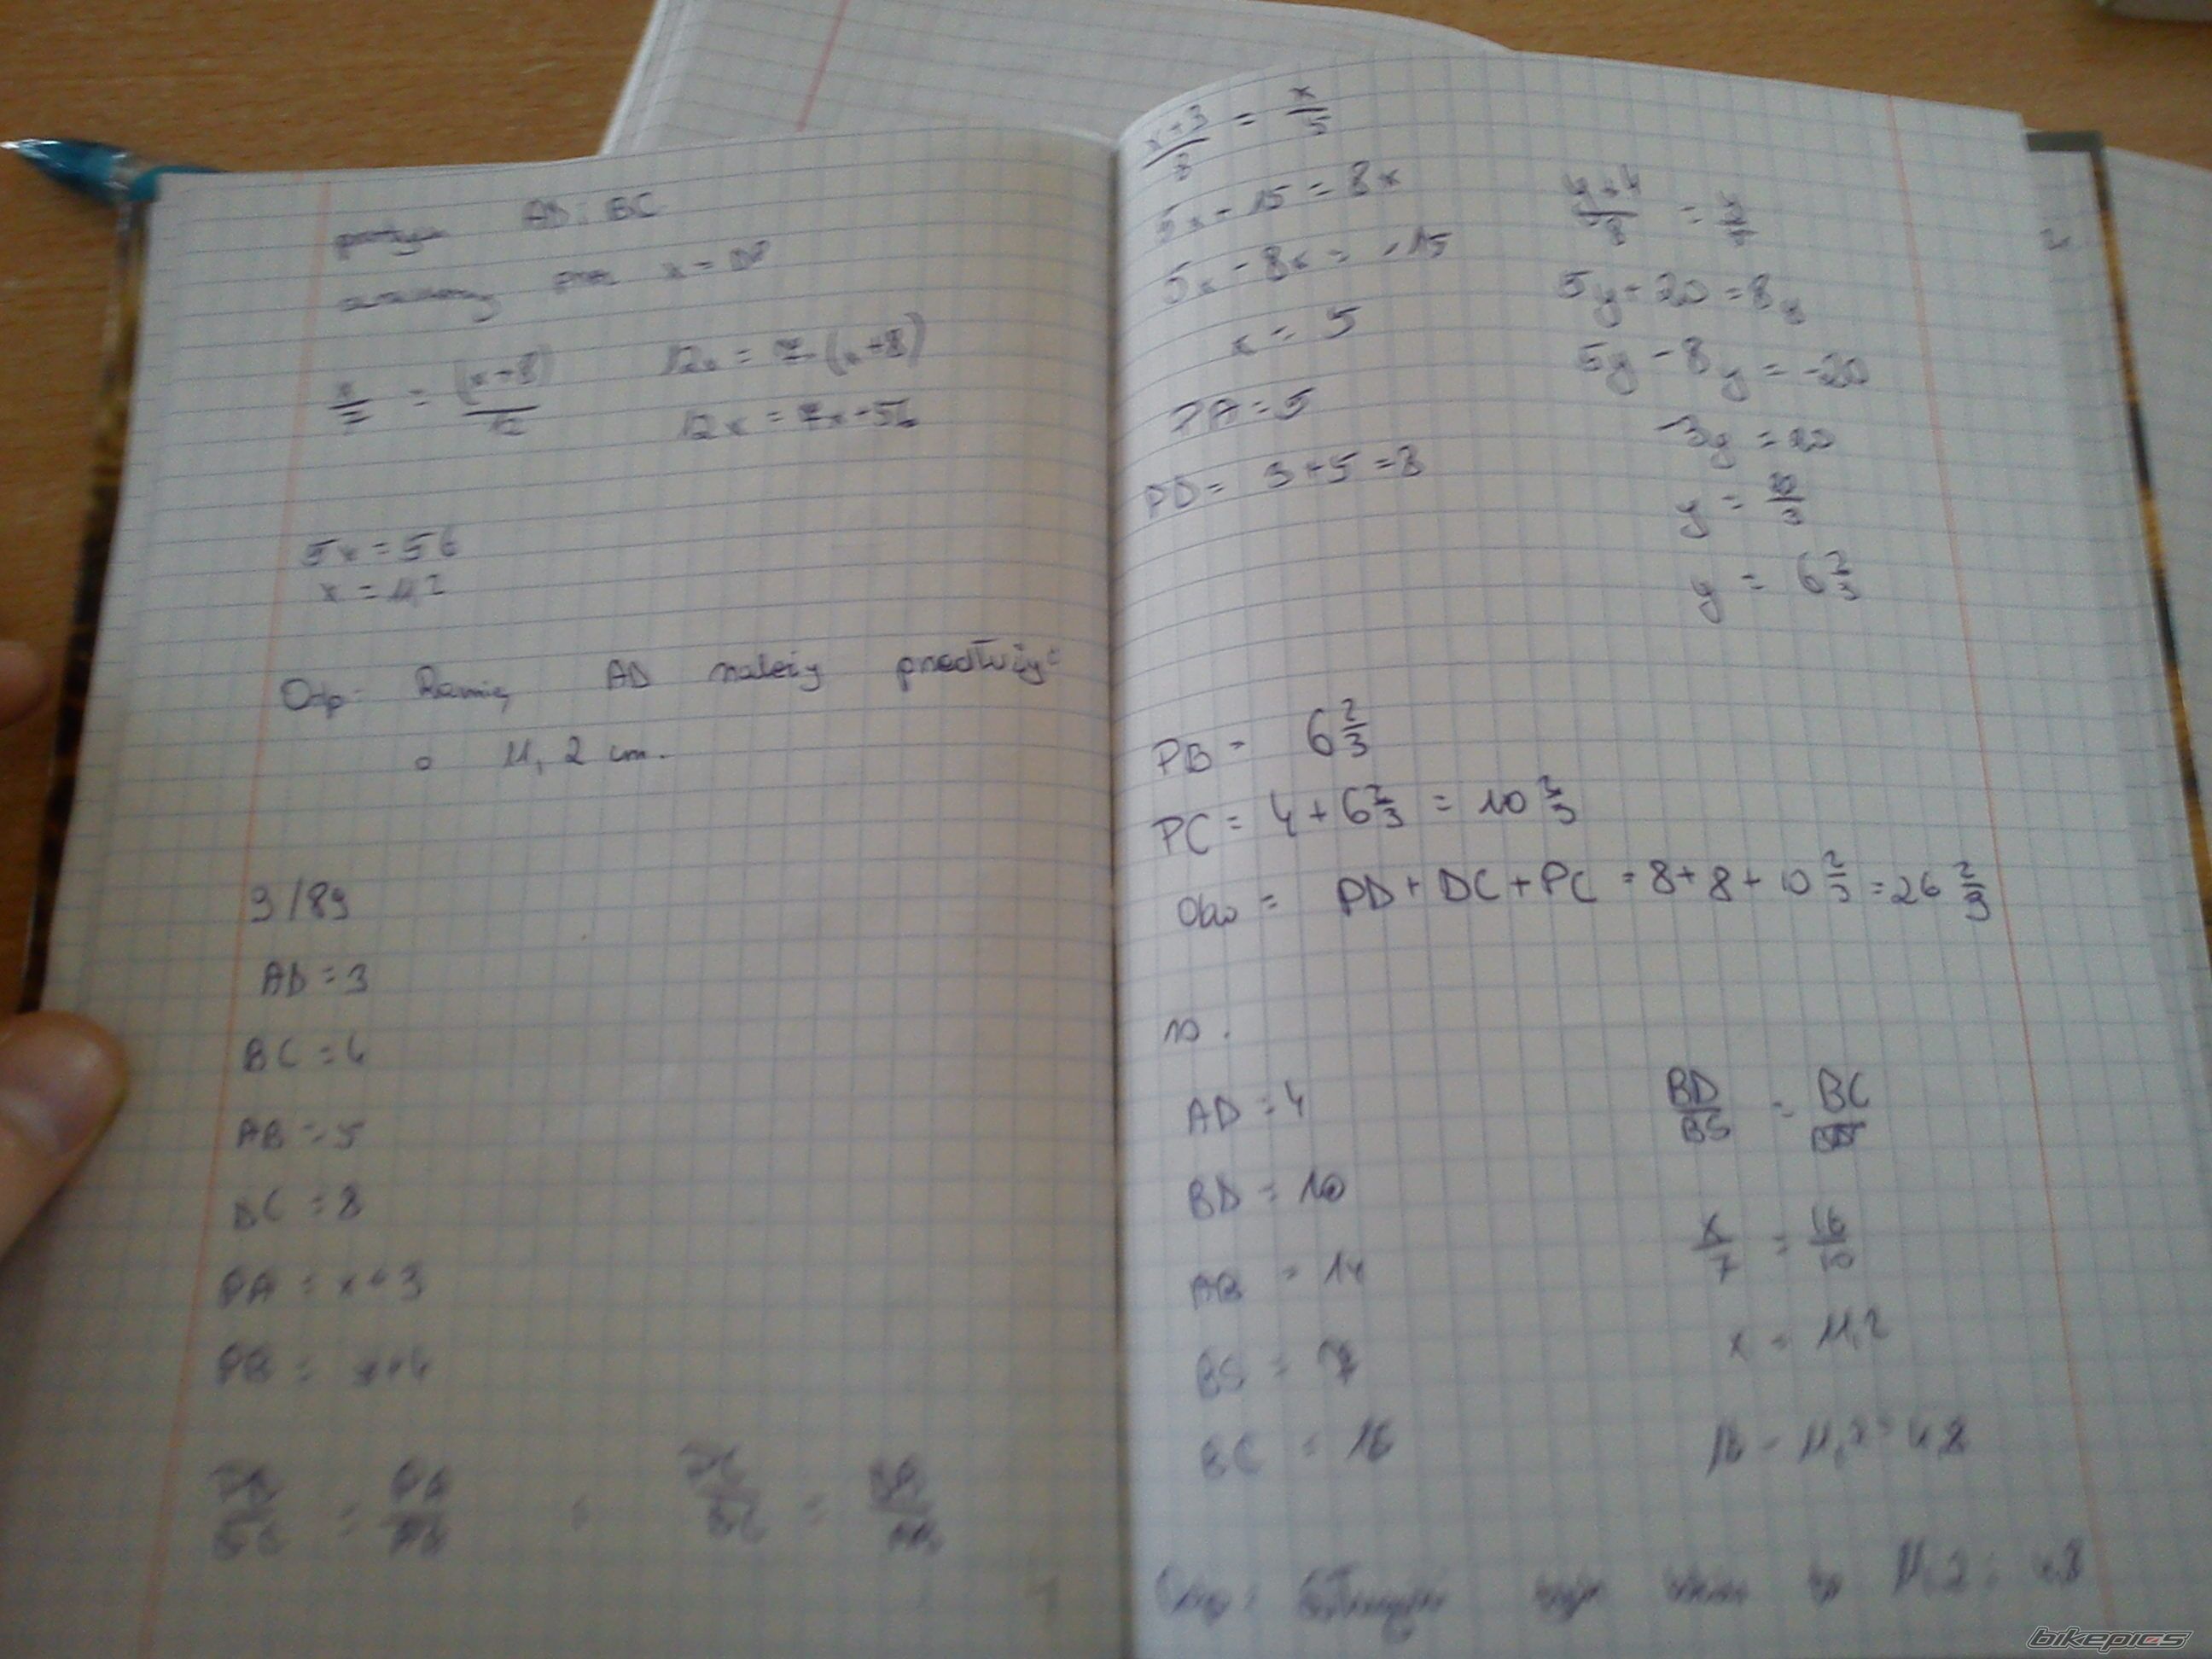 AD i BC
x = DP
x/7 = (x+8)/12    12x = 7(x+8)
12x = 7x+56
5x = 56
x = 11,2
Odp: Ramię AD należy przedłużyć
o 11,2 cm.
9/89
AD = 3
BC = 4
AB = 5
DC = 8
PA = x+3
PB = x+4
x+3/8 = x/5
5x + 15 = 8x
5x - 8x = -15
x = 5
PA = 5
PD = 3+5 = 8
y+4/8 = y/5
5y + 20 = 8y
5y - 8y = -20
-3y = 20
y = 20/3
y = 6 2/3
PB = 6 2/3
PC = 4 + 6 2/3 = 10 2/3
Obw = PD + DC + PC = 8 + 8 + 10 2/3 = 26 2/3
10.
AD = 4
BD = 10
AB = 14
BS = 7
BC = 16
BD/BS = BC/
x/7 = 16/10
x = 11,2
16 - 11,2 = 4,8
Odp: 11,2 i 4,8
bikepics